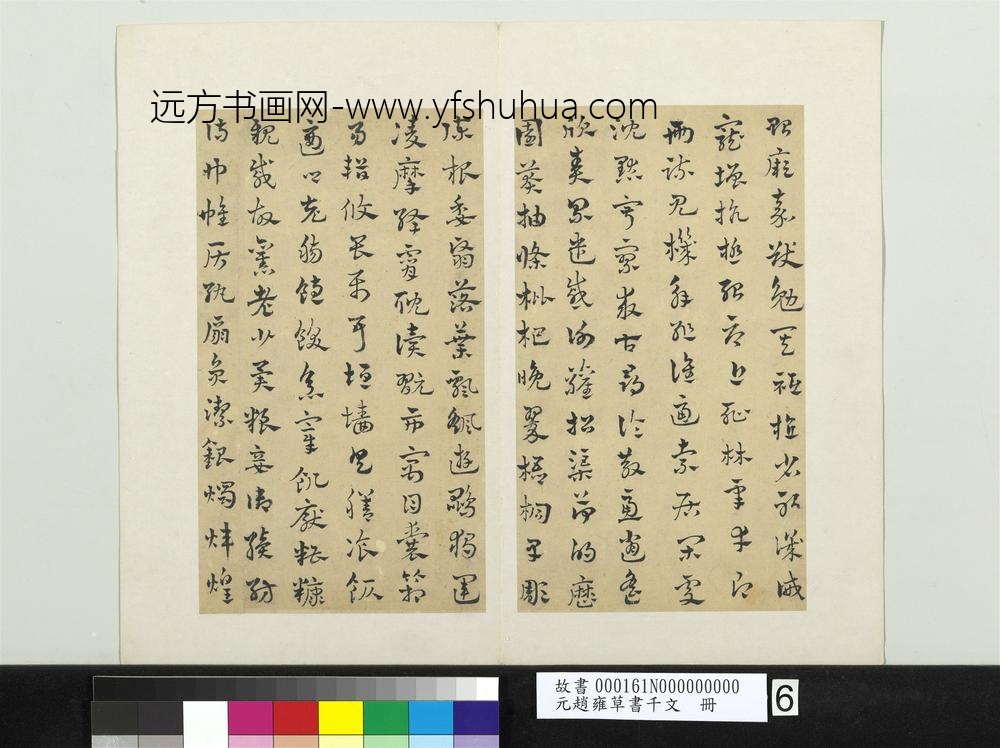 远方书画网-www.yfshuhua.com
貽厥嘉猷勉其祗植省躬譏誡
寵增抗極殆辱近恥林皋幸即
兩疏見機解組誰逼索居閑處
沈默寂寥求古尋論散慮逍遙
欣奏累遣慼謝歡招渠荷的歷
園莽抽條枇杷晚翠梧桐早彫
陳根委翳落葉飄颻遊鵾獨運
凌摩絳霄耽讀翫市寓目囊箱
易輶攸畏屬耳垣墻具膳飡飯
適口充腸飽飫烹宰飢厭糟糠
親戚故舊老少異糧妾御績紡
侍巾帷房紈扇圓潔銀燭煒煌
故書 000161N000000000
元趙雍草書千文 冊
6